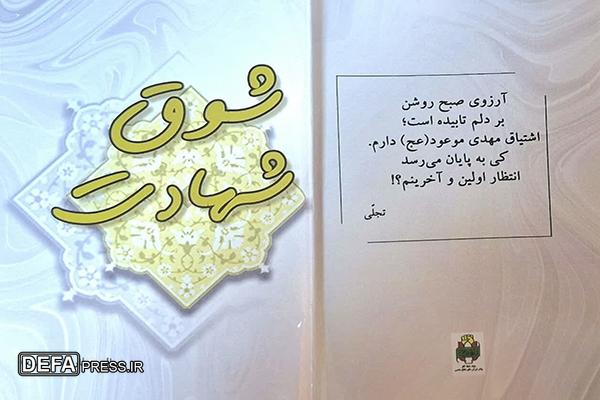 شوق
شهادت
آرزوی صبح روشن
بر دلم تابیده است؛
اشتیاق مهدی موعود(عج) دارم.
کی به پایان می‌رسد
انتظار اولین و آخرینم؟!
تجلّی
DEFAPRESS.IR